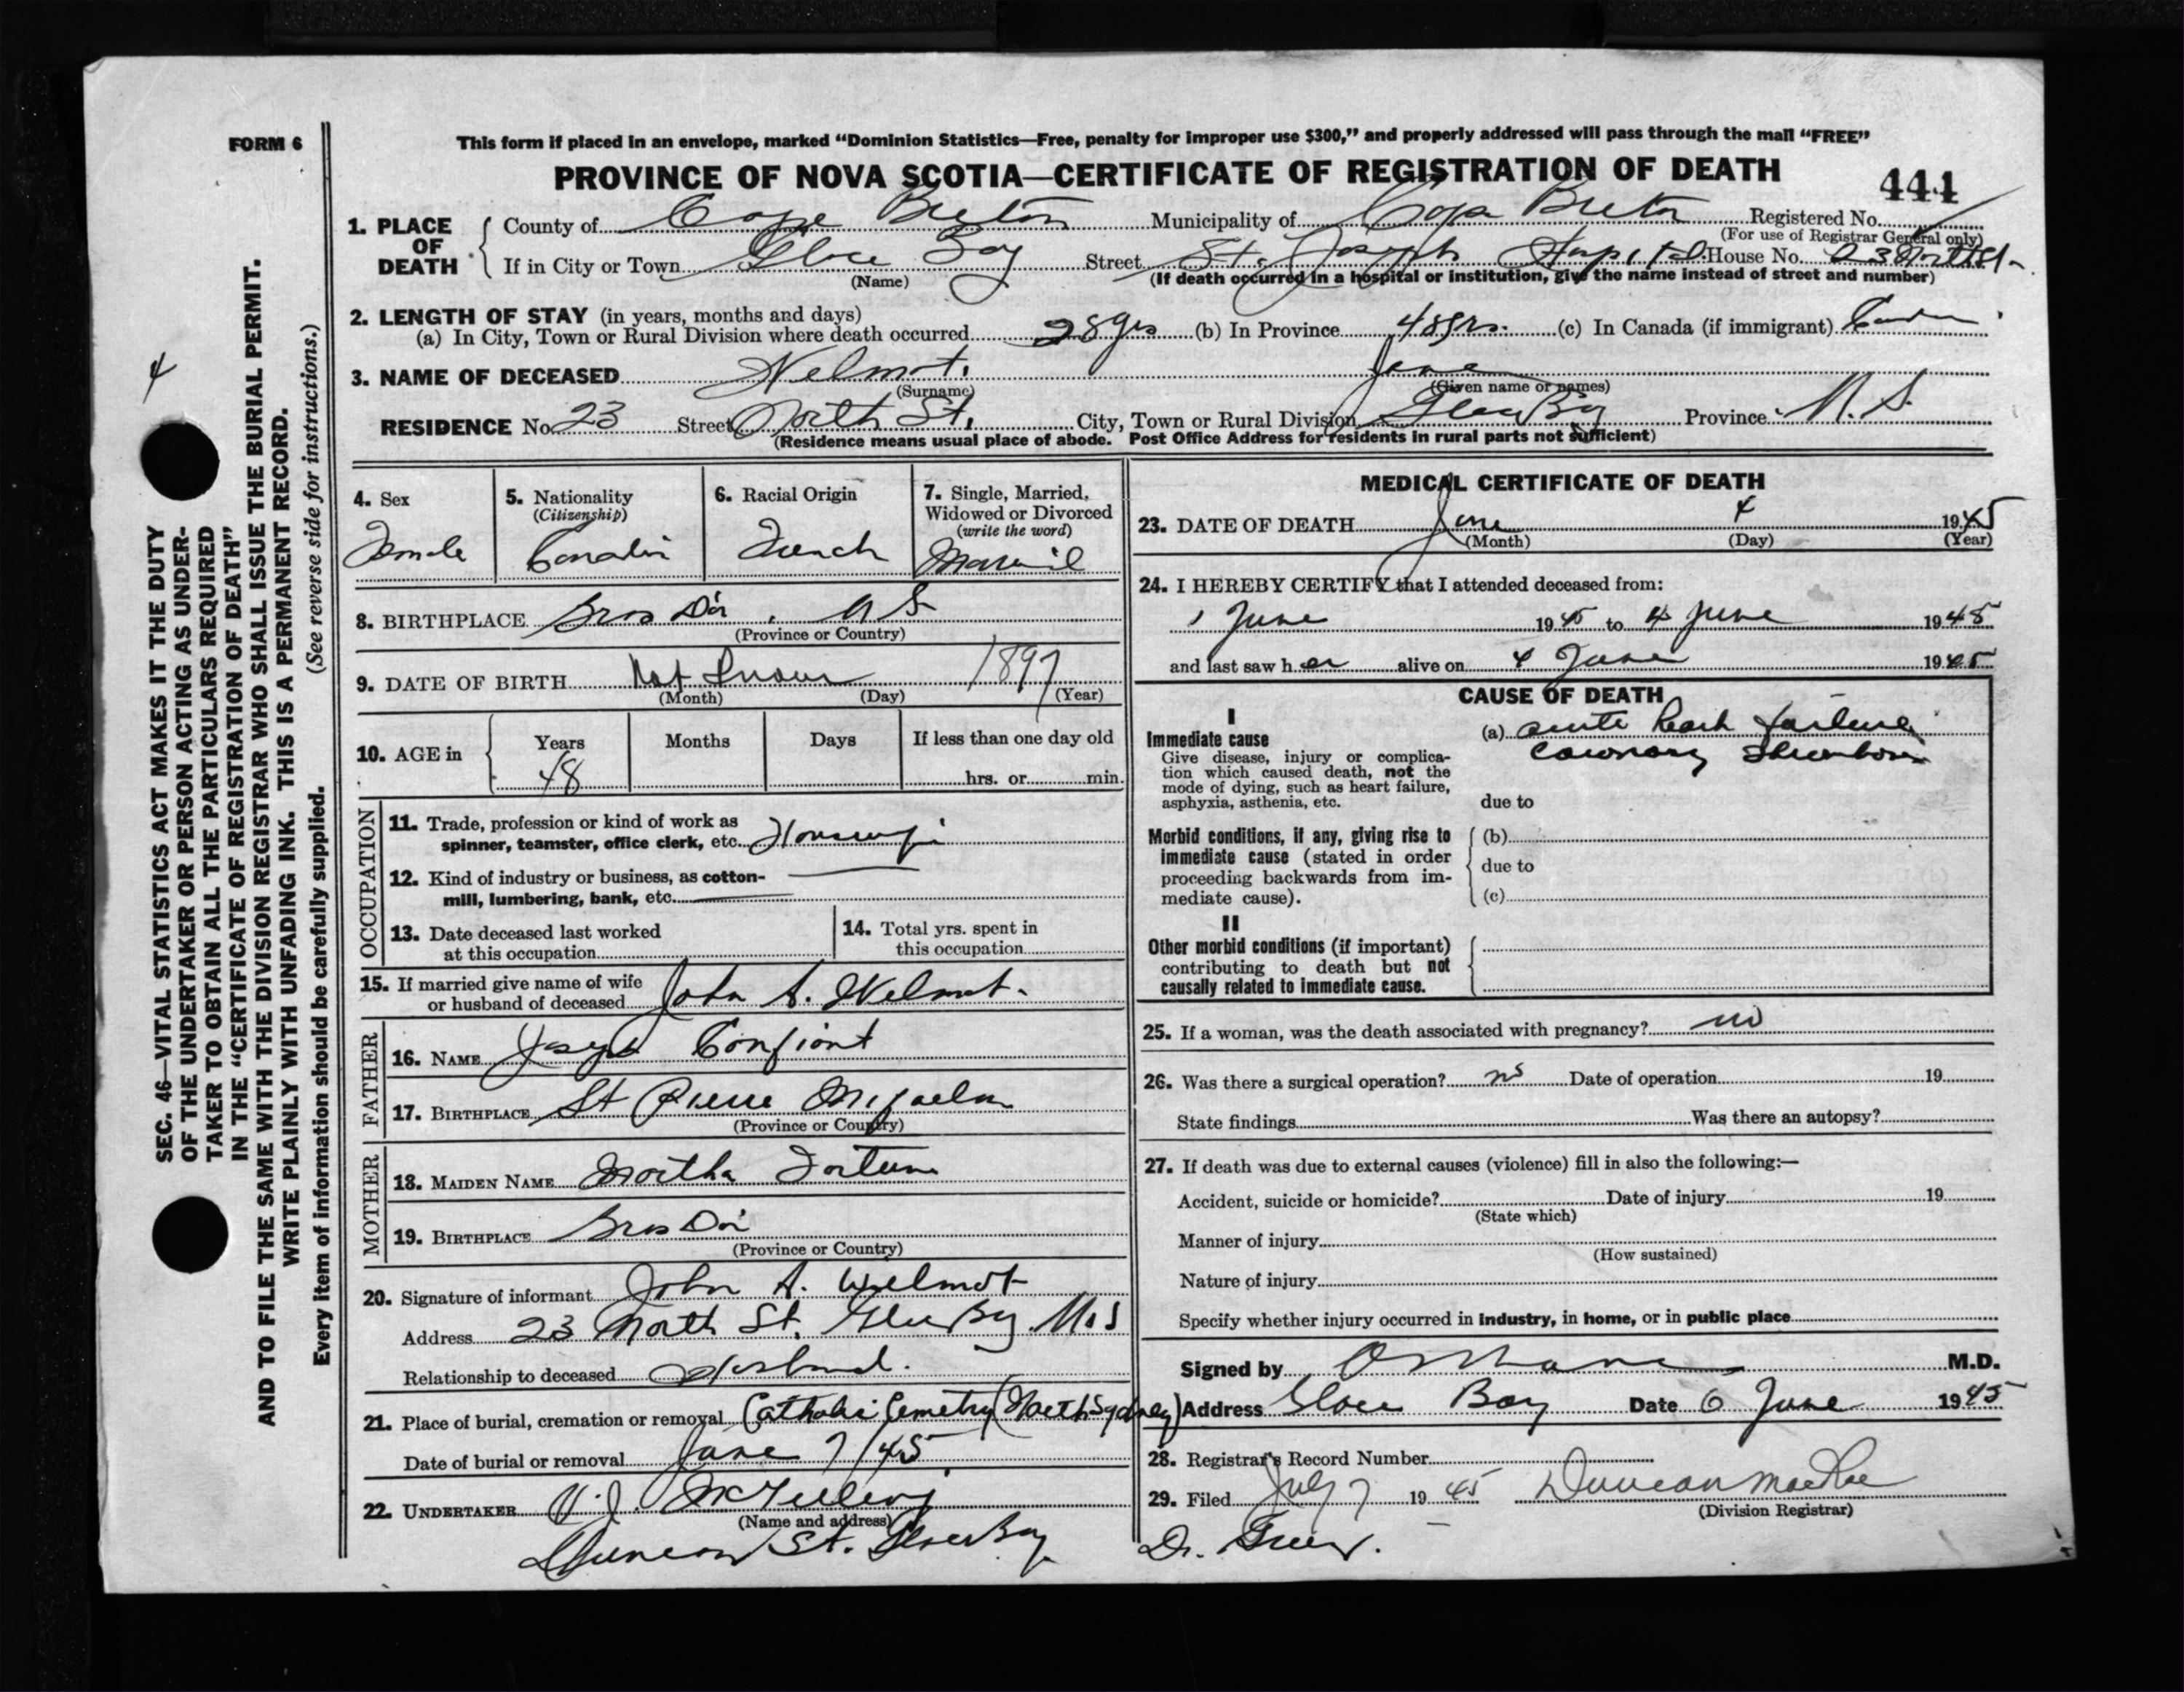 FORM 6
This form if placed in an envelope, marked “Dominion Statistics—Free, penalty for improper use $300,” and properly addressed will pass through the mail “FREE”
PROVINCE OF NOVA SCOTIA—CERTIFICATE OF REGISTRATION OF DEATH
444
1. PLACE OF DEATH
County of Cape Breton Municipality of Cape Breton Registered No.
(For use of Registrar General only)
If in City or Town Glace Bay Street St. Joseph Hospital House No. 23 North St.
(Name) (If death occurred in a hospital or institution, give the name instead of street and number)
2. LENGTH OF STAY (in years, months and days)
(a) In City, Town or Rural Division where death occurred 28 yrs (b) In Province 48 yrs. (c) In Canada (if immigrant)
3. NAME OF DECEASED Welmot. Jane
(Surname) (Given name or names)
RESIDENCE No. 23 Street North St. City, Town or Rural Division Glace Bay Province N. S.
(Residence means usual place of abode. Post Office Address for residents in rural parts not sufficient)
4. Sex
Female
5. Nationality
(Citizenship)
6. Racial Origin
French
7. Single, Married, Widowed or Divorced
(write the word)
8. BIRTHPLACE Bras Dor, N S
(Province or Country)
9. DATE OF BIRTH Not Known 1897
(Month) (Day) (Year)
10. AGE in
Years Months Days If less than one day old
48 hrs. or min.
OCCUPATION
11. Trade, profession or kind of work as
spinner, teamster, office clerk, etc. Housewife
12. Kind of industry or business, as cotton-
mill, lumbering, bank, etc.
13. Date deceased last worked
at this occupation
14. Total yrs. spent in
this occupation
15. If married give name of wife
or husband of deceased John A. Welmot.
FATHER
16. NAME Joseph Confiant
17. BIRTHPLACE St Pierre
(Province or Country)
MOTHER
18. MAIDEN NAME Martha Fortune
19. BIRTHPLACE Bras Dor
(Province or Country)
20. Signature of informant John A. Wilmot
Address 23 North St. Glace Bay N.S
Relationship to deceased Husband.
21. Place of burial, cremation or removal Catholic Cemetry (North Sydney)
Date of burial or removal June 7/45
22. UNDERTAKER V. J.
(Name and address)
St. Glace Bay
MEDICAL CERTIFICATE OF DEATH
23. DATE OF DEATH June 4 1945
(Month) (Day) (Year)
24. I HEREBY CERTIFY that I attended deceased from:
1 June 1945 to 4 June 1945
and last saw her alive on 4 June 1945
CAUSE OF DEATH
I
Immediate cause
Give disease, injury or complica-
tion which caused death, not the
mode of dying, such as heart failure,
asphyxia, asthenia, etc.
(a) acute heart failure
coronary thrombosis
due to
Morbid conditions, if any, giving rise to
immediate cause (stated in order
proceeding backwards from im-
mediate cause).
(b)
due to
(c)
II
Other morbid conditions (if important)
contributing to death but not
causally related to immediate cause.
25. If a woman, was the death associated with pregnancy? no
26. Was there a surgical operation? no Date of operation 19
State findings Was there an autopsy?
27. If death was due to external causes (violence) fill in also the following:—
Accident, suicide or homicide? Date of injury 19
(State which)
Manner of injury
(How sustained)
Nature of injury
Specify whether injury occurred in industry, in home, or in public place
Signed by M.D.
Address Glace Bay Date 6 June 1945
28. Registrar's Record Number
29. Filed July 7 1945 Duncan MacRae
(Division Registrar)
Dr.
4
SEC. 46—VITAL STATISTICS ACT MAKES IT THE DUTY
OF THE UNDERTAKER OR PERSON ACTING AS UNDER-
TAKER TO OBTAIN ALL THE PARTICULARS REQUIRED
IN THE “CERTIFICATE OF REGISTRATION OF DEATH”
AND TO FILE THE SAME WITH THE DIVISION REGISTRAR WHO SHALL ISSUE THE BURIAL PERMIT.
WRITE PLAINLY WITH UNFADING INK. THIS IS A PERMANENT RECORD.
Every item of information should be carefully supplied. (See reverse side for instructions.)